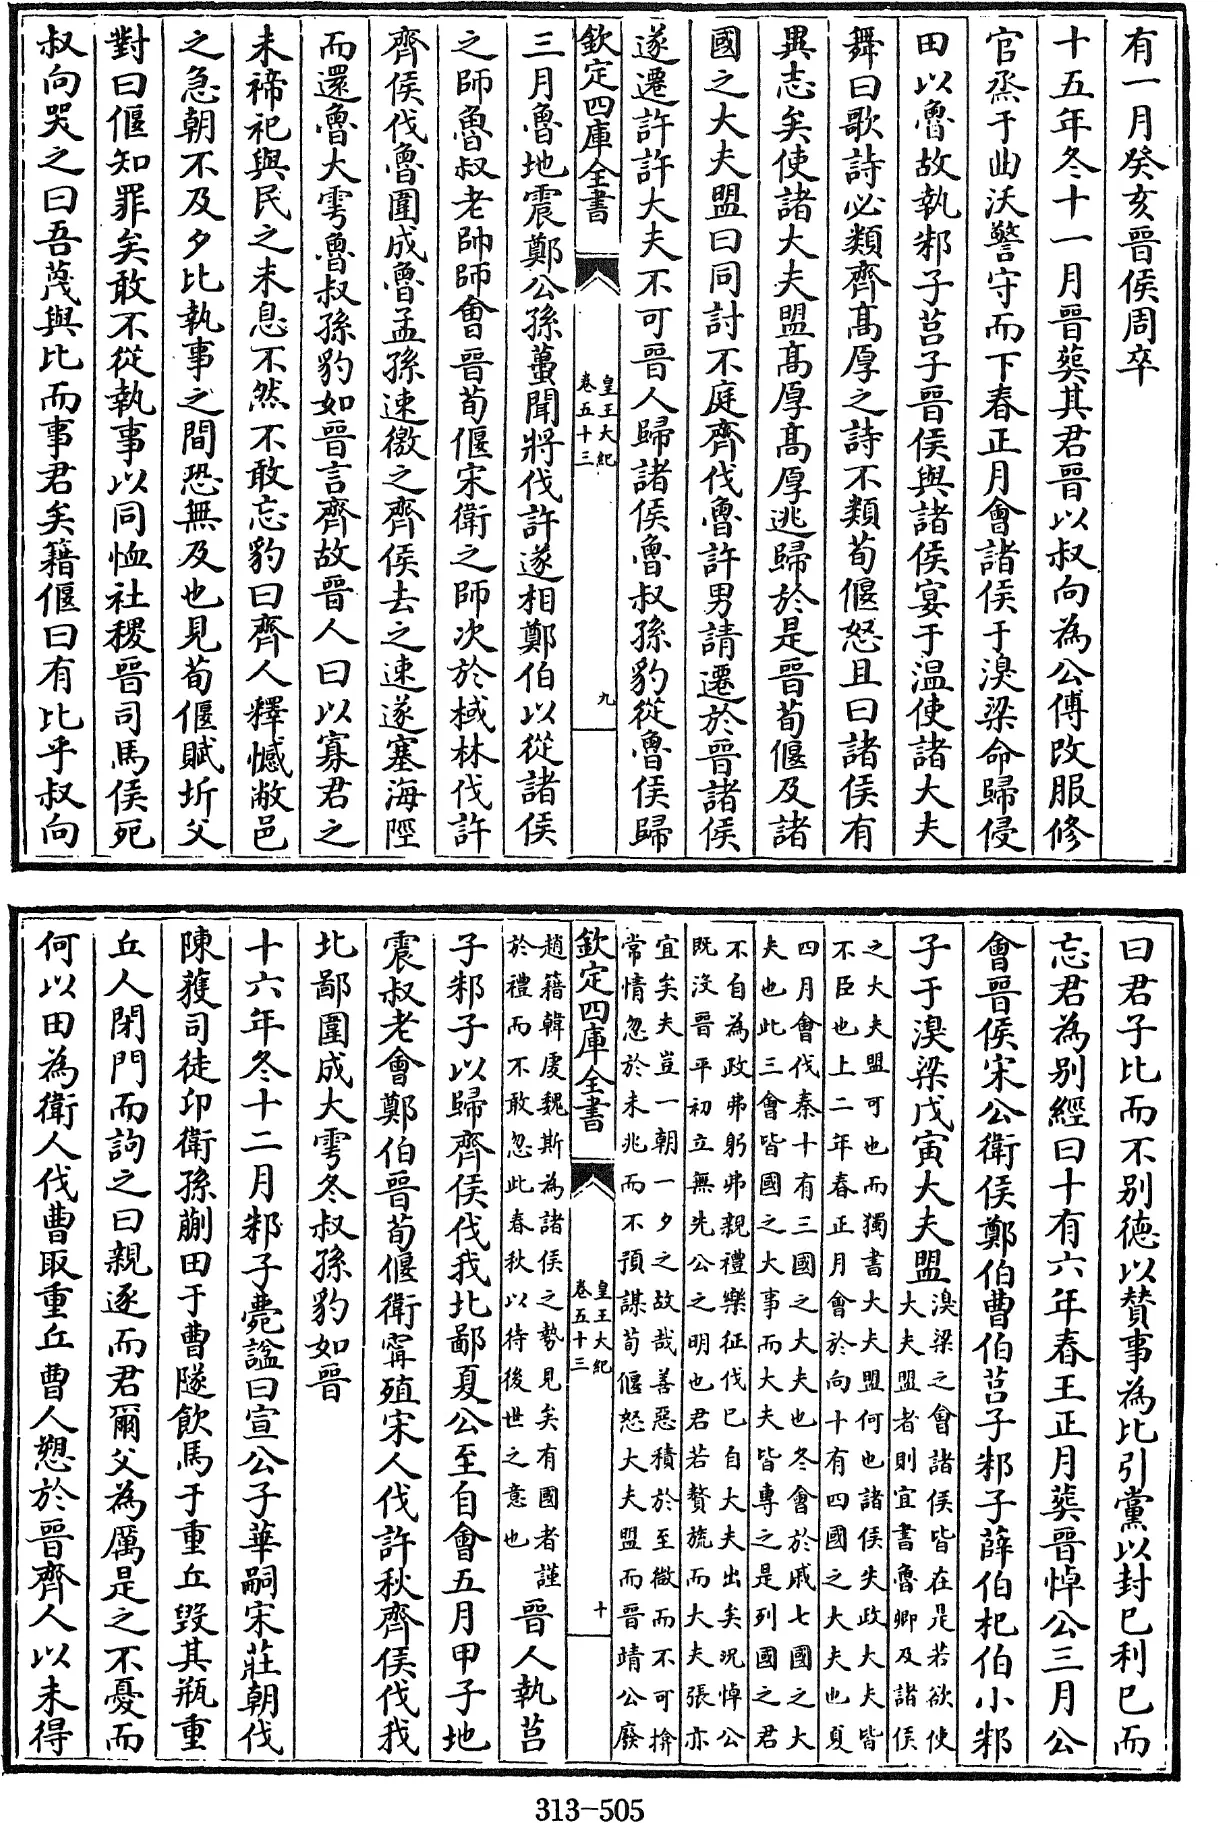 有一月癸亥晉侯周卒
十五年冬十一月晉葬其君晉以叔向為公傅改服修
官烝于曲沃警守而下春正月會諸侯于溴梁命歸侵
田以魯故執邾子莒子晉侯與諸侯宴于温使諸大夫
舞曰歌詩必類齊髙厚之詩不類荀偃怒且曰諸侯有
異志矣使諸大夫盟髙厚髙厚逃歸於是晉荀偃及諸
國之大夫盟曰同討不庭齊伐魯許男請遷於晉諸侯
遂遷許許大夫不可晉人歸諸侯魯叔孫豹從魯侯歸
欽定四庫全書
皇王大紀
卷五十三
九
三月魯地震鄭公孫蠆聞將伐許遂相鄭伯以從諸侯
之師魯叔老帥師會晉荀偃宋衛之師次於棫林伐許
齊侯伐魯圍成魯孟孫速徼之齊侯去之速遂塞海陘
而還魯大雩魯叔孫豹如晉言齊故晉人曰以寡君之
未禘祀與民之未息不然不敢忘豹曰齊人釋憾敝邑
之急朝不及夕比執事之間恐無及也見荀偃賦圻父
對曰偃知罪矣敢不從執事以同恤社稷晉司馬侯死
叔向哭之曰吾蔑與比而事君矣籍偃曰有比乎叔向
曰君子比而不别德以贊事為比引黨以封已利已而
忘君為别經曰十有六年春王正月葬晉悼公三月公
會晉侯宋公衛侯鄭伯曹伯莒子邾子薛伯杞伯小邾
子于溴梁戊寅大夫盟
溴梁之會諸侯皆在是若欲使
大夫盟者則宜書魯卿及諸侯
之大夫盟可也而獨書大夫盟何也諸侯失政大夫皆
不臣也上二年春正月會於向十有四國之大夫也夏
四月會伐秦十有三國之大夫也冬會於戚七國之大
夫也此三會皆國之大事而大夫皆專之是列國之君
不自為政弗躬弗親禮樂征伐已自大夫出矣况悼公
既沒晉平初立無先公之明也君若贅旒而大夫張亦
宜矣夫豈一朝一夕之故哉善惡積於至微而不可揜
常情忽於未兆而不預謀荀偃怒大夫盟而晉靖公廢
欽定四庫全書
皇王大紀
卷五十三
十
趙籍韓虔魏斯為諸侯之勢見矣有國者謹
於禮而不敢忽此春秋以待後世之意也
晉人執莒
子邾子以歸齊侯伐我北鄙夏公至自會五月甲子地
震叔老會鄭伯晉荀偃衛甯殖宋人伐許秋齊侯伐我
北鄙圍成大雩冬叔孫豹如晉
十六年冬十二月邾子薨諡曰宣公子華嗣宋莊朝伐
陳獲司徒卬衛孫蒯田于曹隧飲馬于重丘毁其瓶重
丘人閉門而詢之曰親逐而君爾父為厲是之不憂而
何以田為衛人伐曹取重丘曹人愬於晉齊人以未得
313-505